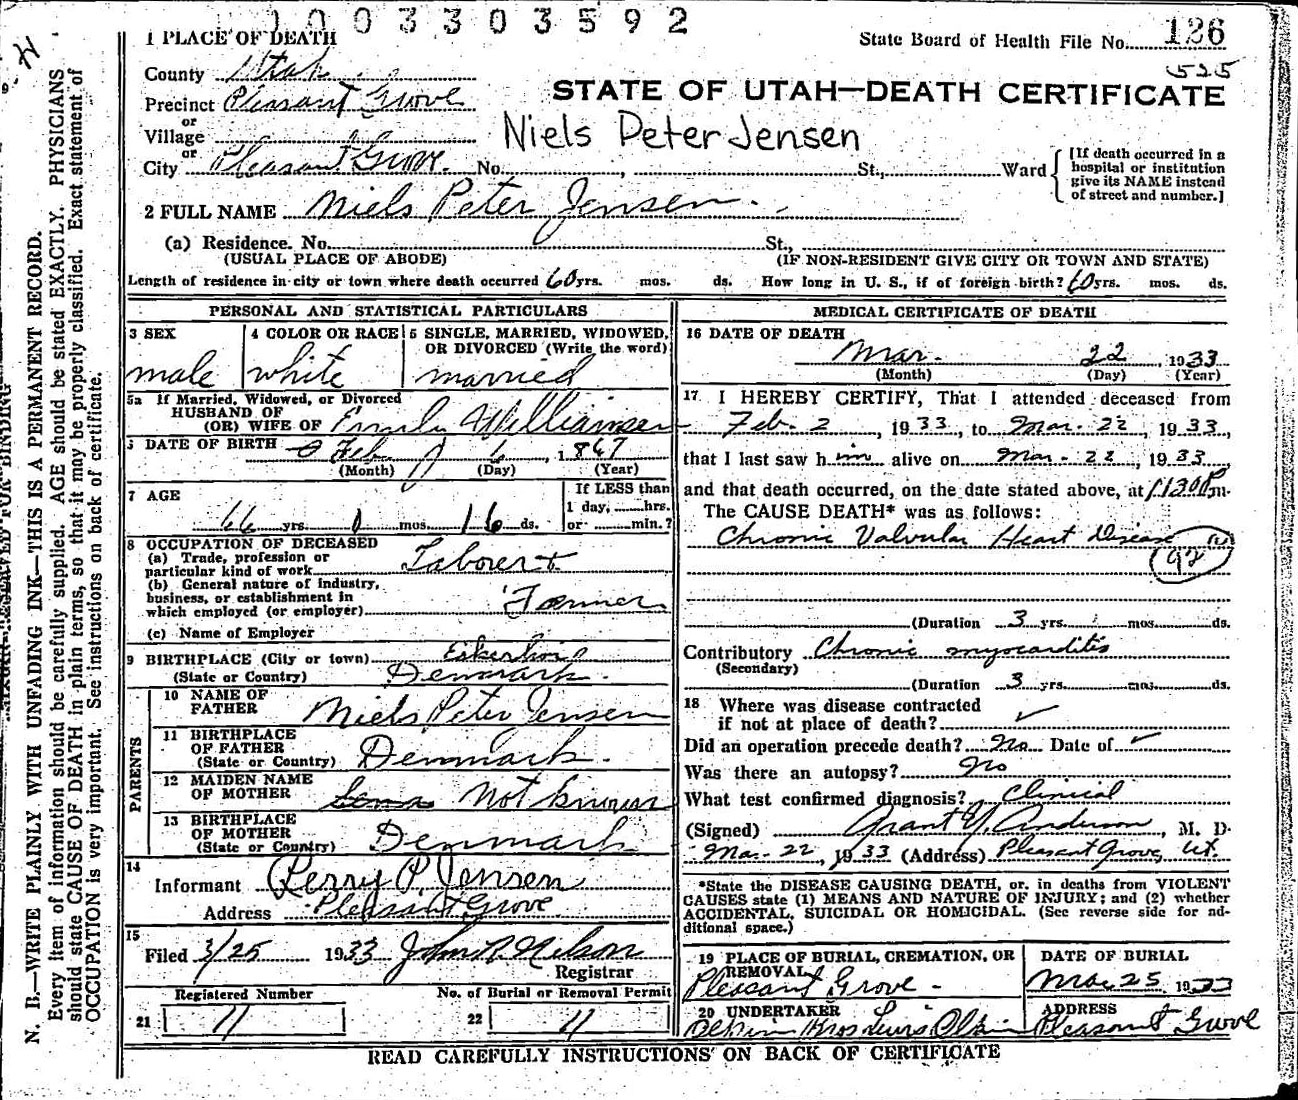 1003303592
1 PLACE OF DEATH
State Board of Health File No. 126
525
County Utah
STATE OF UTAH—DEATH CERTIFICATE
Precinct Pleasant Grove
or
Village
Niels Peter Jensen
or
City Pleasant Grove. No. , St., Ward
[If death occurred in a
hospital or institution
give its NAME instead
of street and number.]
2 FULL NAME Niels Peter Jensen.
(a) Residence. No. St.,
(USUAL PLACE OF ABODE) (IF NON-RESIDENT GIVE CITY OR TOWN AND STATE)
Length of residence in city or town where death occurred 60 yrs. mos. ds. How long in U. S., if of foreign birth? 60 yrs. mos. ds.
PERSONAL AND STATISTICAL PARTICULARS
3 SEX
male
4 COLOR OR RACE
white
5 SINGLE, MARRIED, WIDOWED,
OR DIVORCED (Write the word)
married
5a If Married, Widowed, or Divorced
HUSBAND OF
(OR) WIFE OF Williamsen
6 DATE OF BIRTH Feb 6, 1867
(Month) (Day) (Year)
7 AGE
66 yrs. 1 mos. 16 ds.
If LESS than
1 day, hrs.
or min.?
8 OCCUPATION OF DECEASED
(a) Trade, profession or
particular kind of work Laborer +
(b) General nature of industry,
business, or establishment in
which employed (or employer) Farmer
(c) Name of Employer
9 BIRTHPLACE (City or town)
(State or Country) Denmark.
PARENTS
10 NAME OF
FATHER Niels Peter Jensen
11 BIRTHPLACE
OF FATHER
(State or Country) Denmark.
12 MAIDEN NAME
OF MOTHER Not known
13 BIRTHPLACE
OF MOTHER
(State or Country) Denmark
14
Informant Perry P. Jensen
Address Pleasant Grove
15
Filed 3/25 1933 John R. Nelson
Registrar
Registered Number
21 11
No. of Burial or Removal Permit
22 11
MEDICAL CERTIFICATE OF DEATH
16 DATE OF DEATH
Mar. 22, 1933
(Month) (Day) (Year)
17 I HEREBY CERTIFY, That I attended deceased from
Feb. 2, 1933, to Mar. 22, 1933,
that I last saw him alive on Mar. 22, 1933
and that death occurred, on the date stated above, at 1:30 P m.
The CAUSE DEATH* was as follows:
Chronic Valvular Heart Disease
92
(Duration 3 yrs. mos. ds.
Contributory Chronic myocarditis
(Secondary)
(Duration 3 yrs. mos. ds.
18 Where was disease contracted
if not at place of death? ✓
Did an operation precede death? No Date of ✓
Was there an autopsy? No
What test confirmed diagnosis? Clinical
(Signed) Grant Y. Anderson, M. D.
Mar. 22, 1933 (Address) Pleasant Grove, Ut.
*State the DISEASE CAUSING DEATH, or, in deaths from VIOLENT
CAUSES state (1) MEANS AND NATURE OF INJURY; and (2) whether
ACCIDENTAL, SUICIDAL OR HOMICIDAL. (See reverse side for ad-
ditional space.)
19 PLACE OF BURIAL, CREMATION, OR
REMOVAL
Pleasant Grove
DATE OF BURIAL
Mar 25, 1933
20 UNDERTAKER
Bros
ADDRESS
Pleasant Grove
READ CAREFULLY INSTRUCTIONS ON BACK OF CERTIFICATE
N. B.—WRITE PLAINLY WITH UNFADING INK—THIS IS A PERMANENT RECORD.
Every item of information should be carefully supplied. AGE should be stated EXACTLY. PHYSICIANS
should state CAUSE OF DEATH in plain terms, so that it may be properly classified. Exact statement of
OCCUPATION is very important. See instructions on back of certificate.